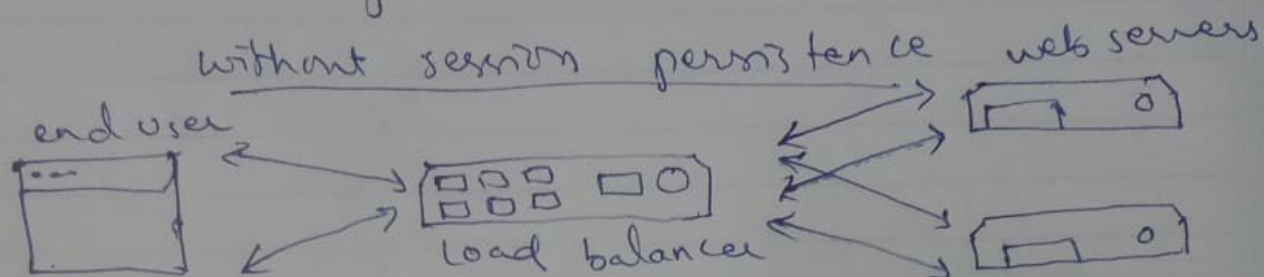 without session persistence web servers
end user
load balancer